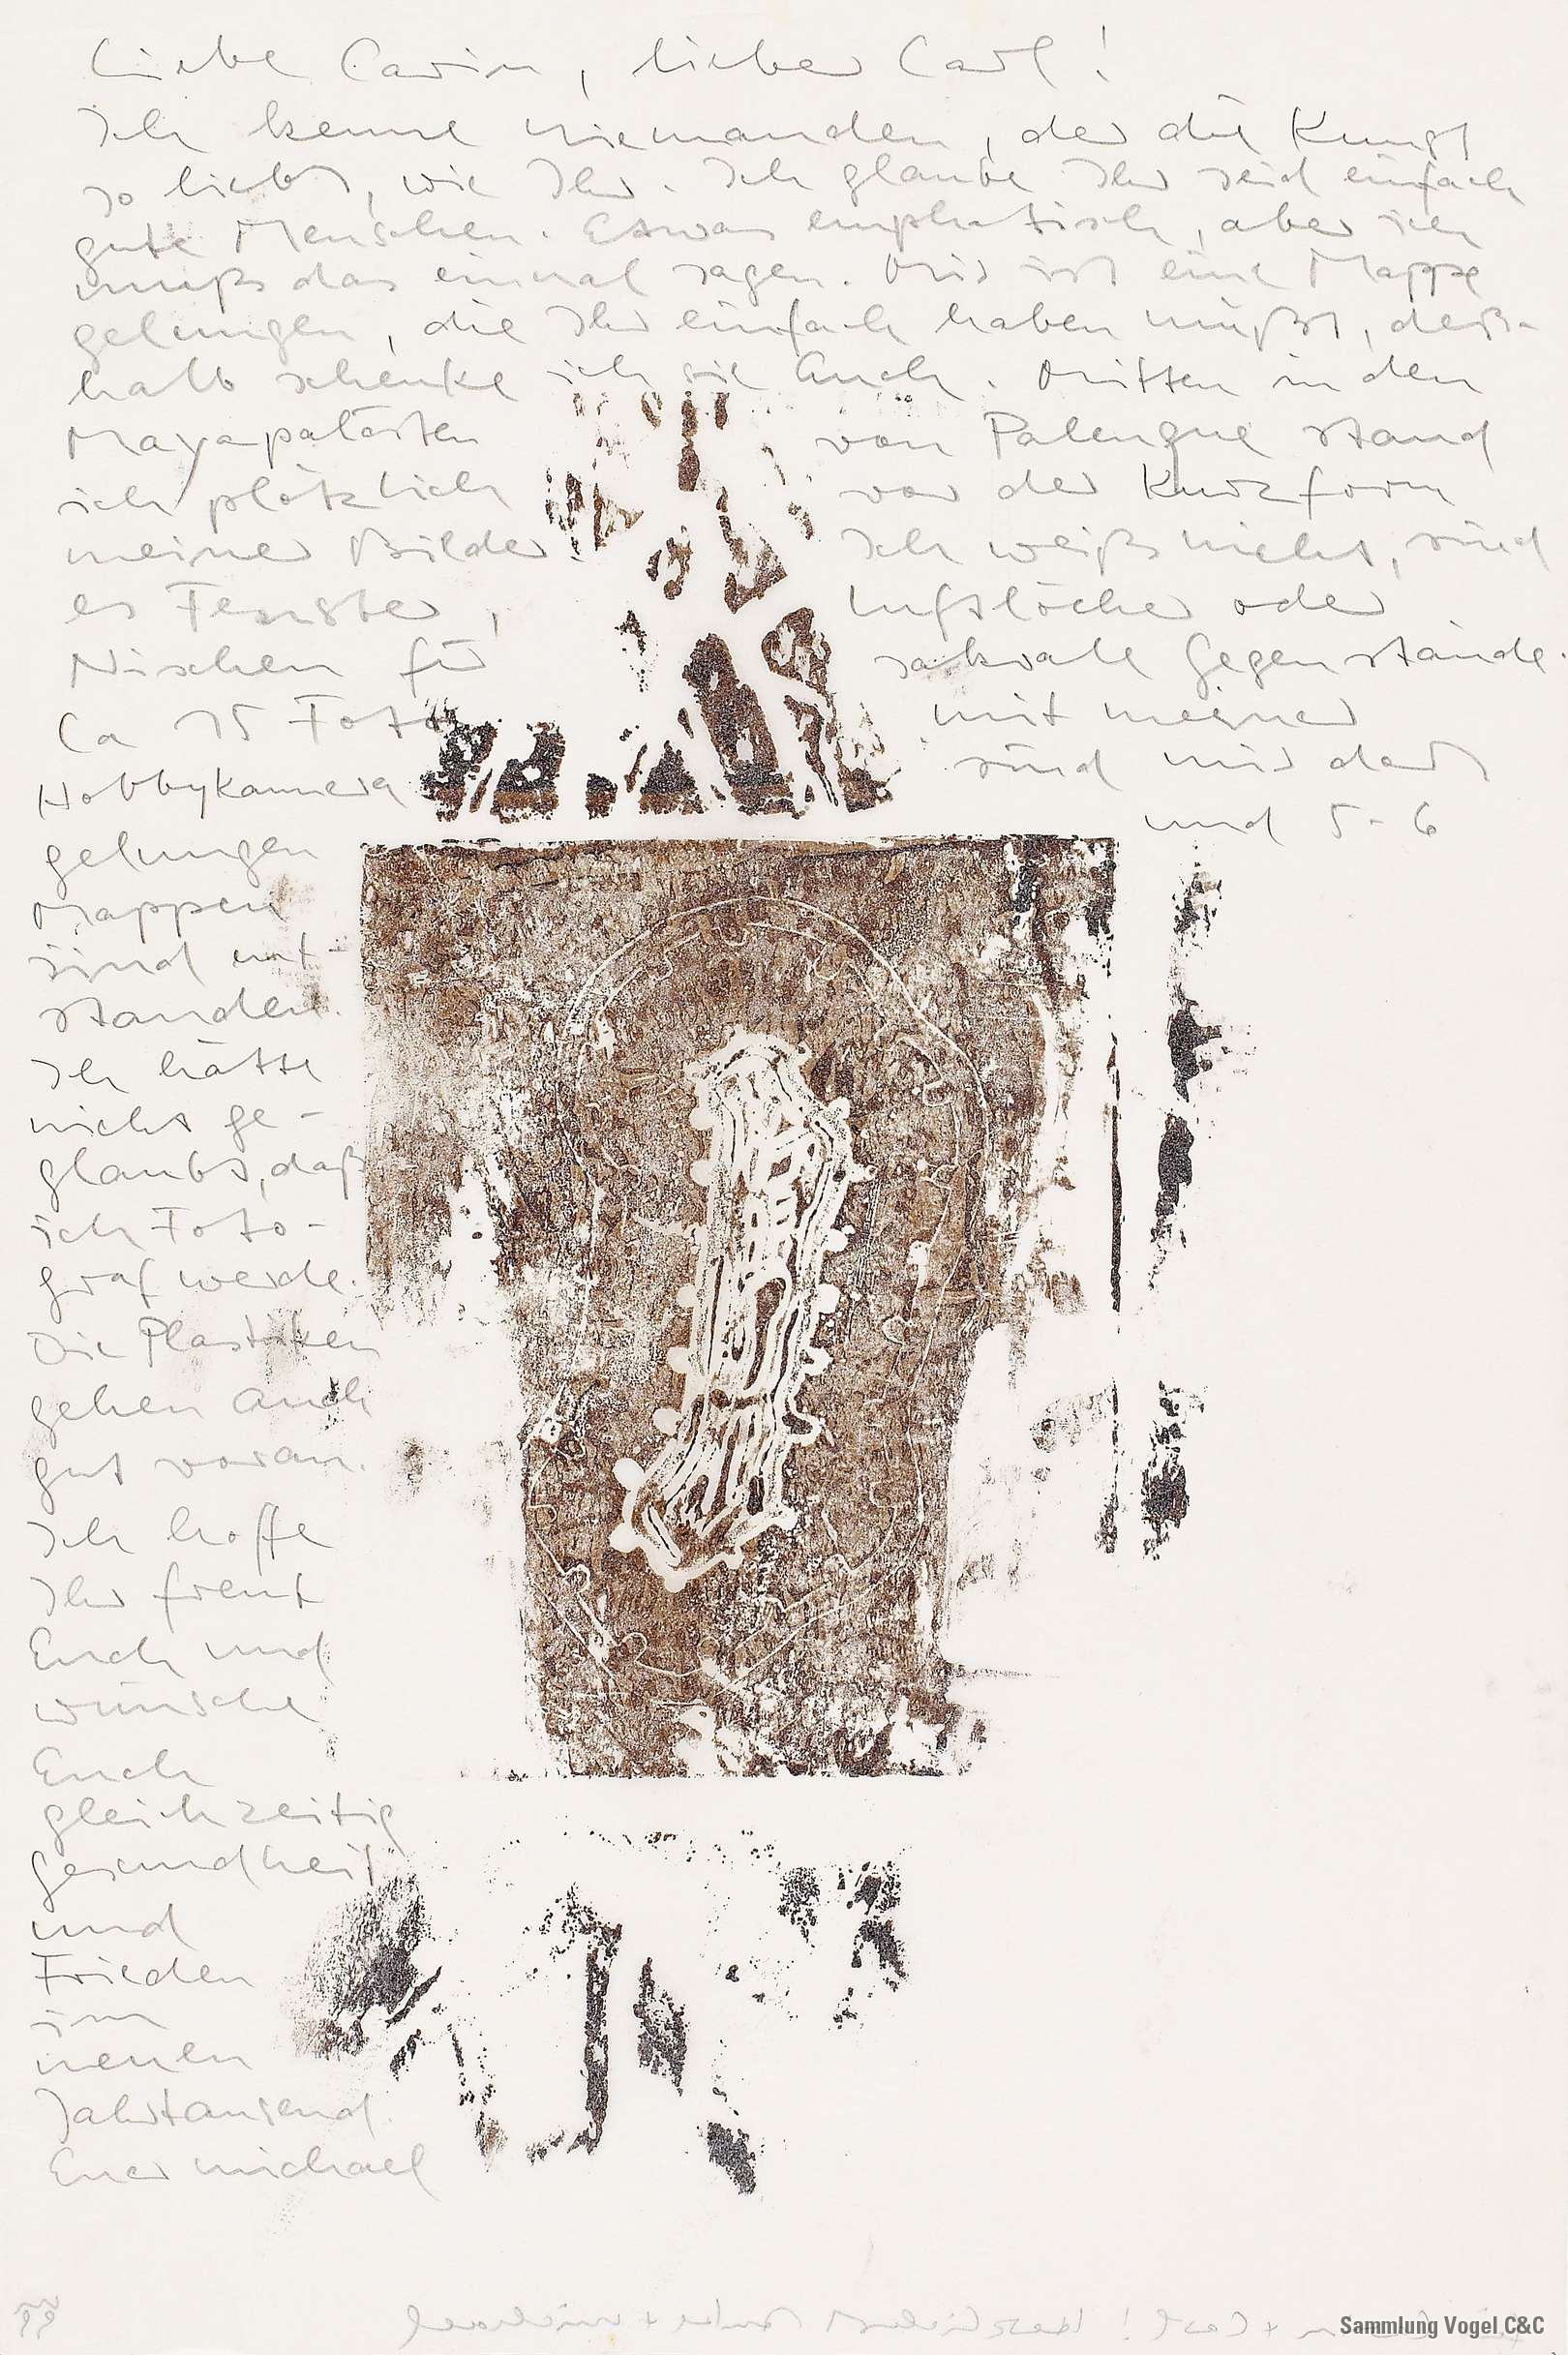 Liebe Carin, lieber Carl!
Ich kenne niemanden, der die Kunst
so liebt, wie Ihr. Ich glaube Ihr seid einfach
gute Menschen. Etwas emphatisch, aber ich
muß das einmal sagen. Mir ist eine Mappe
gelungen, die Ihr einfach haben müßt, deß-
halb schenke ich sie Euch. Mitten in den
Mayapalästen von Palenque stand
ich plötzlich vor der Kurzform
meiner Bilder. Ich weiß nicht, sind
es Fenster, Luftlöcher oder
Nischen für sakrale Gegenstände.
Ca 75 Fotos mit meiner
Hobbykamera sind mir dort
gelungen und 5-6
Mappen
sind ent-
standen.
Ich hätte
nicht ge-
glaubt, daß
ich Foto-
graf werde.
Die Plastiken
gehen auch
gut voran.
Ich hoffe
Ihr freut
Euch und
wünsche
Euch
gleichzeitig
Gesundheit
und
Frieden
im
neuen
Jahrtausend.
Euer Michael
99
+ Carl! Herzlichst + Michael
Sammlung Vogel C&C